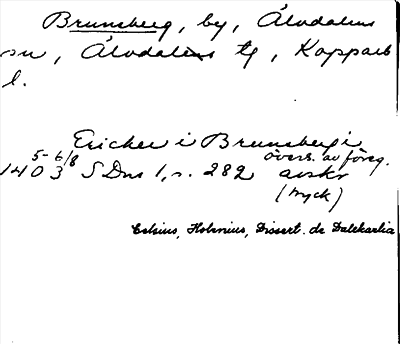 Brunsberg, by, Älvdalens
sn, Älvdalens tg, Kopparb
l.
Erichee i Brunsbergi
5-6/8 övers. av föreg.
1403 SDns 1, s. 282 avskr
(tryck)
Celsius, Holenius, Dissert. de Dalekarlia